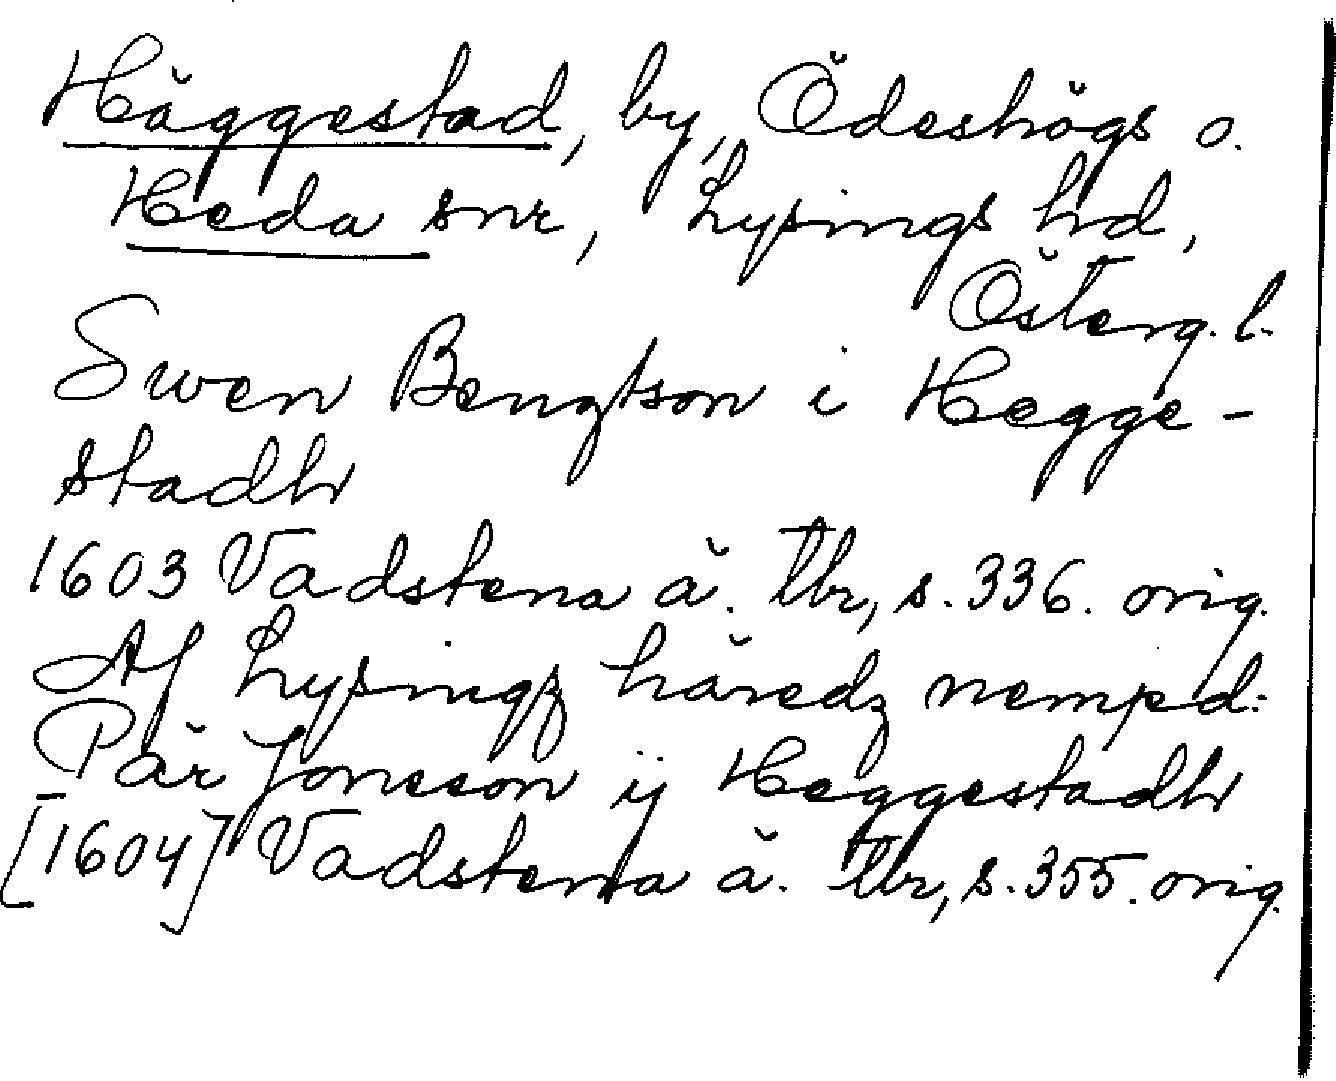 Häggestad, by, Ödeshögs o.
Heda snr, Lysings hd,
Österg. l.
Swen Bengtson i Hegge-
stadh
1603 Vadstena ä. tbr, s. 336. orig.
Af Lysingz häredz nempd:
Pär Jonsson ij Heggestadh
[1604] Vadstena ä. tbr, s. 355. orig.